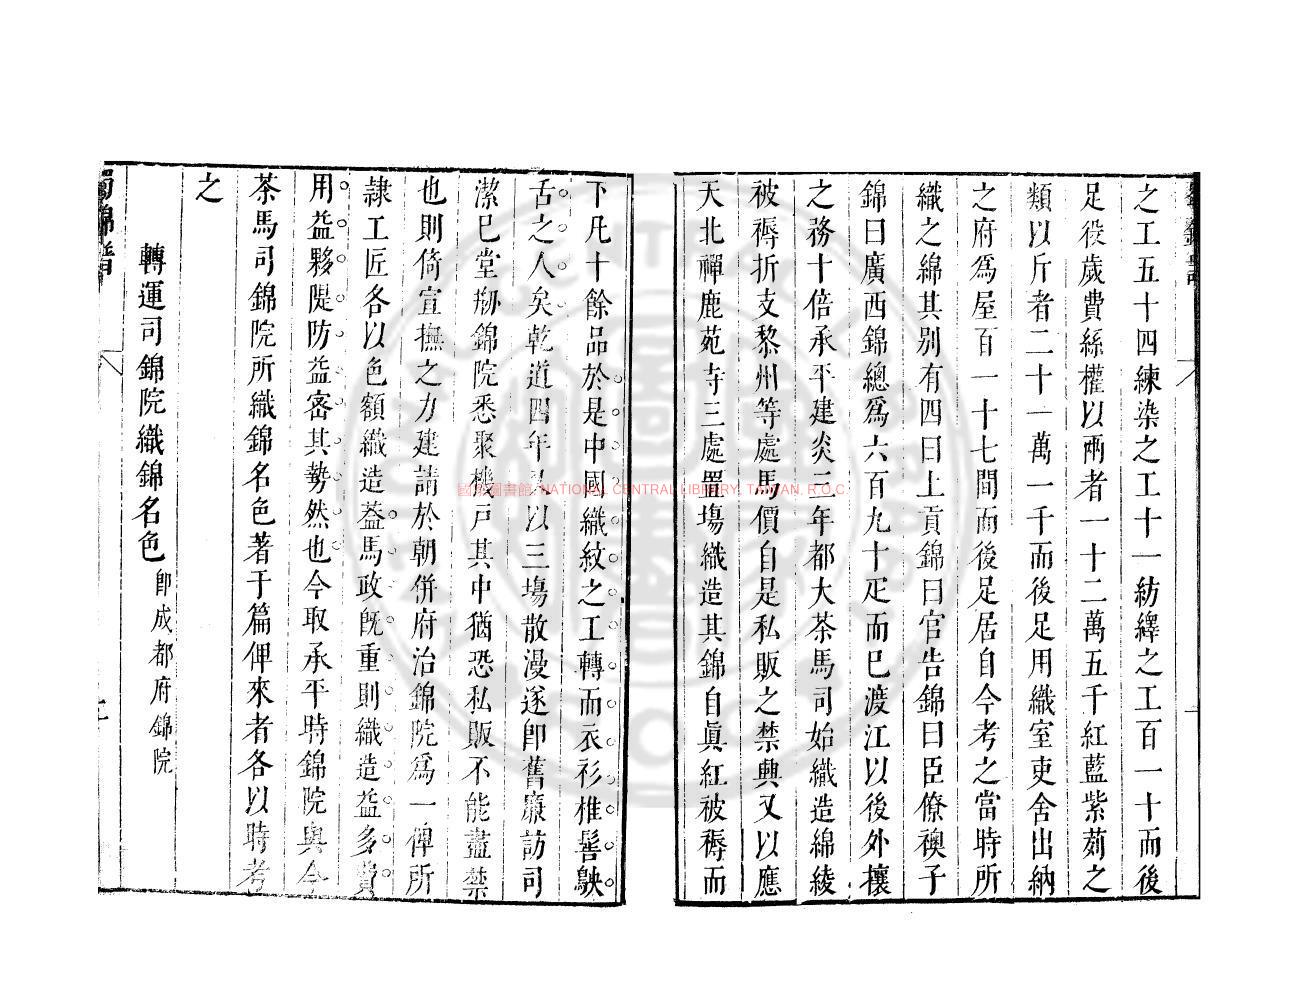 之工五十四練染之工十一紡繹之工百一十而後
足役歲費絲權以兩者一十二萬五千紅藍紫茢之
類以斤者二十一萬一千而後足用織室吏舍出納
之府爲屋百一十七間而後足居自今考之當時所
織之錦其别有四曰上貢錦曰官告錦曰臣僚襖子
錦曰廣西錦總爲六百九十疋而巳渡江以後外攘
之務十倍承平建炎三年都大茶馬司始織造錦綾
被褥折支黎州等處馬價自是私販之禁興又以應
天北禪鹿苑寺三處置塲織造其錦自眞紅被褥而
下凡十餘品於是中國織紋之工轉而衣衫椎髻鴃
舌之人矣乾道四年又以三塲散漫遂卽舊廉訪司
潔巳堂刱錦院悉聚機戸其中猶恐私販不能盡禁
也則倚宣撫之力建請於朝併府治錦院爲一俾所
隷工匠各以色額織造葢馬政旣重則織造益多費
用益夥隄防益宻其勢然也今取承平時錦院與今
茶馬司錦院所織錦名色著于篇俾來者各以時考
之
轉運司錦院織錦名色 卽成都府錦院
蜀錦譜
國家圖書館 NATIONAL CENTRAL LIBRARY, TAIWAN, R.O.C